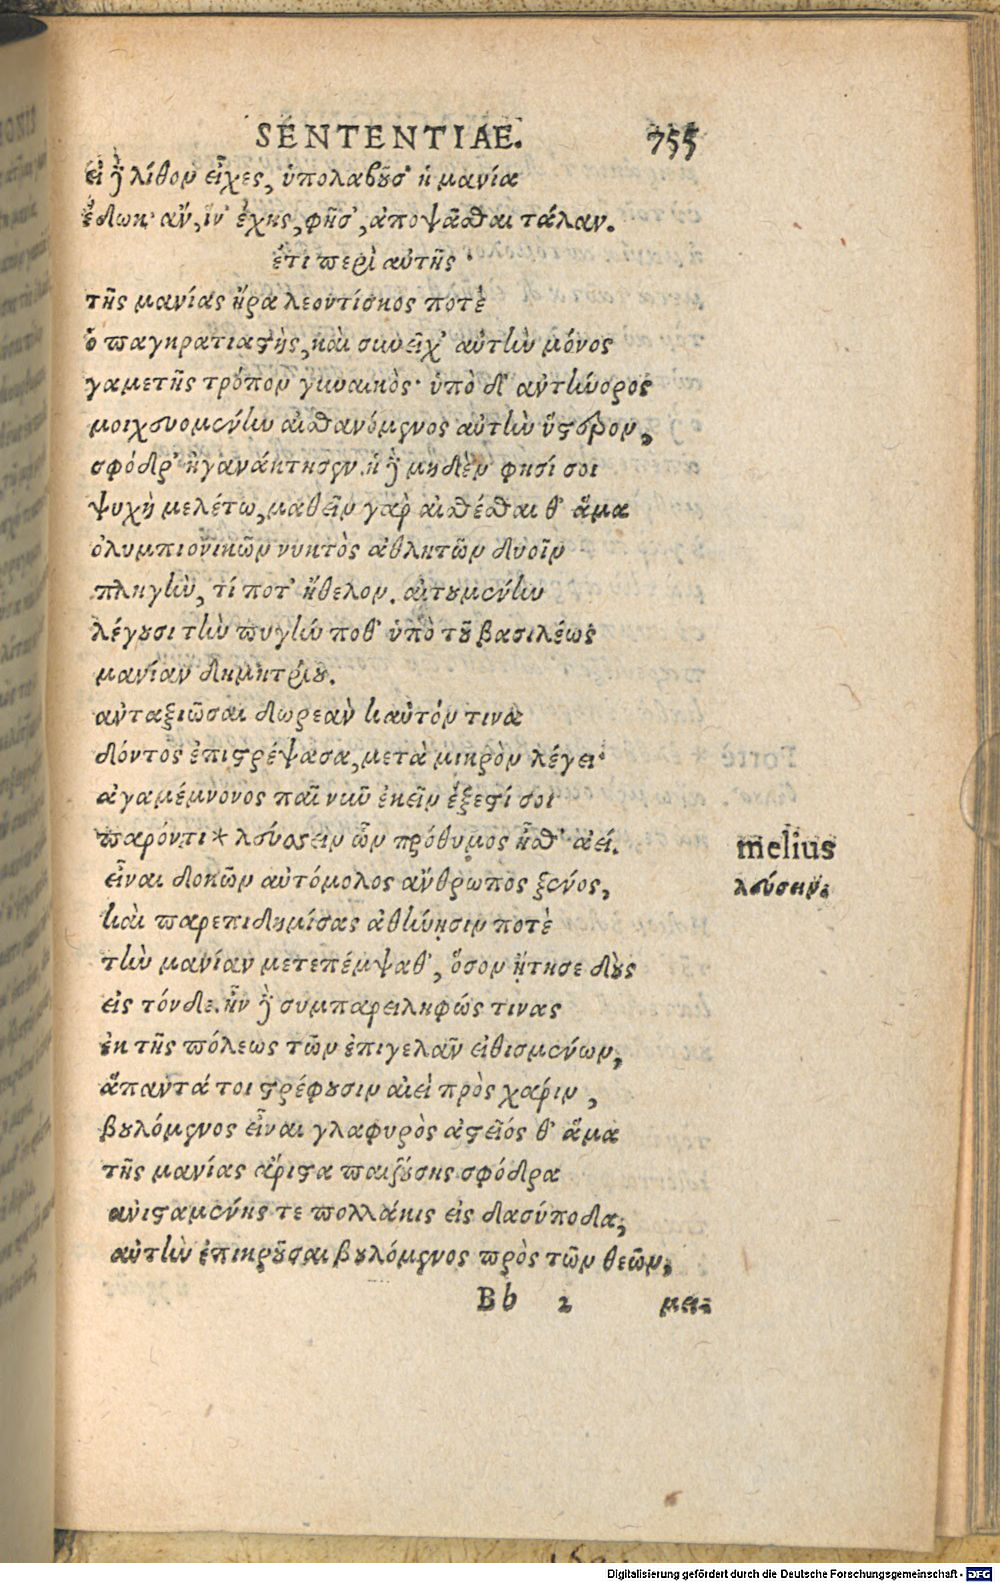 SENTENTIAE. 755
εἰ δὲ λίθον εἶχες, ὑπολαβοῦσ' ἡ μανία
ἔδωκ' ἄν, ἵν' ἔχῃς, φησ', ἀποψᾶσθαι τάλαν.
ἔτι περὶ αὐτῆς.
τῆς μανίας ἤρα λεοντίσκος ποτὲ
ὁ παγκρατιαστής, καὶ συνεῖχ' αὐτὴν μόνος
γαμετῆς τρόπον γυναικὸς· ὑπὸ δ' ἀντήνορος
μοιχευομένην αἰσθανόμενος αὐτὴν ὕστερον,
σφόδρ' ἠγανάκτησεν. ἡ δὲ μηδὲν φησί σοι
ψυχὴ μελέτω, μαθεῖν γὰρ αἰσθέσθαι θ' ἅμα
ὀλυμπιονικῶν νυκτὸς ἀθλητῶν δυοῖν
πληγὴν, τί ποτ' ἤθελον. αἰτουμένην
λέγουσι τὴν πυγήν ποθ' ὑπὸ τοῦ βασιλέως
μανίαν δημητρίου.
ἀνταξιῶσαι δωρεὰν καυτόν τινα
δόντος ἐπιστρέψασα, μετὰ μικρὸν λέγει·
ἀγαμέμνονος παῖ νῦν ἐκεῖν ἔξεστί σοι
παρόντι * λεύσσειν ὧν πρόθυμος ἦσθ' ἀεί.
melius
λεύσειν.
εἶναι δοκῶν αὐτόμολος ἄνθρωπος ξένος,
καὶ παρεπιδημίσας ἀθήνησιν ποτὲ
τὴν μανίαν μετεπέμψαθ', ὅσον ᾔτησε δοὺς
εἰς τόνδε. ἦν δὲ συμπαρειληφώς τινας
ἐκ τῆς πόλεως τῶν ἐπιγελᾶν εἰθισμένων,
ἅπαντά τοι στρέφουσιν αἰεὶ πρὸς χάριν,
βουλόμενος εἶναι γλαφυρὸς ἀστεῖός θ' ἅμα
τῆς μανίας ἄριστα παιζούσης σφόδρα
ἀνισταμένης τε πολλάκις εἰς δασύποδα,
αὐτὴν ἐπικροῦσαι βουλόμενος πρὸς τῶν θεῶν,
Bb 2 μει-
Digitalisierung gefördert durch die Deutsche Forschungsgemeinschaft - DFG